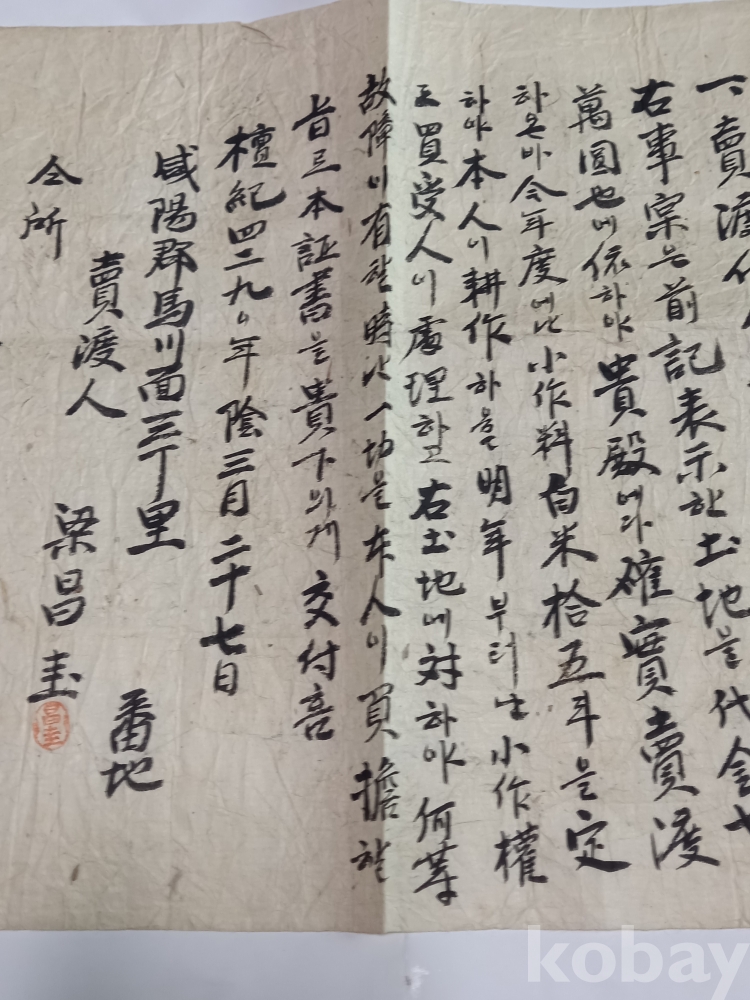 一、賣渡代金
右事宗은前記表示한土地을代金七
萬圓也에依하야貴殿에다確實賣渡
하온바今年度에는小作料白米拾五斗을定
하야本人이耕作하옵고明年부터는小作權
도買受人이處理하고右土地에対하야何等
故障이有할時は一切을本人이負擔할
旨로本証書을貴下의게交付홈
檀紀四二九〇年陰三月二十七日
咸陽郡馬川面三丁里
番地
賣渡人 梁昌圭
仝所
昌圭
kobay